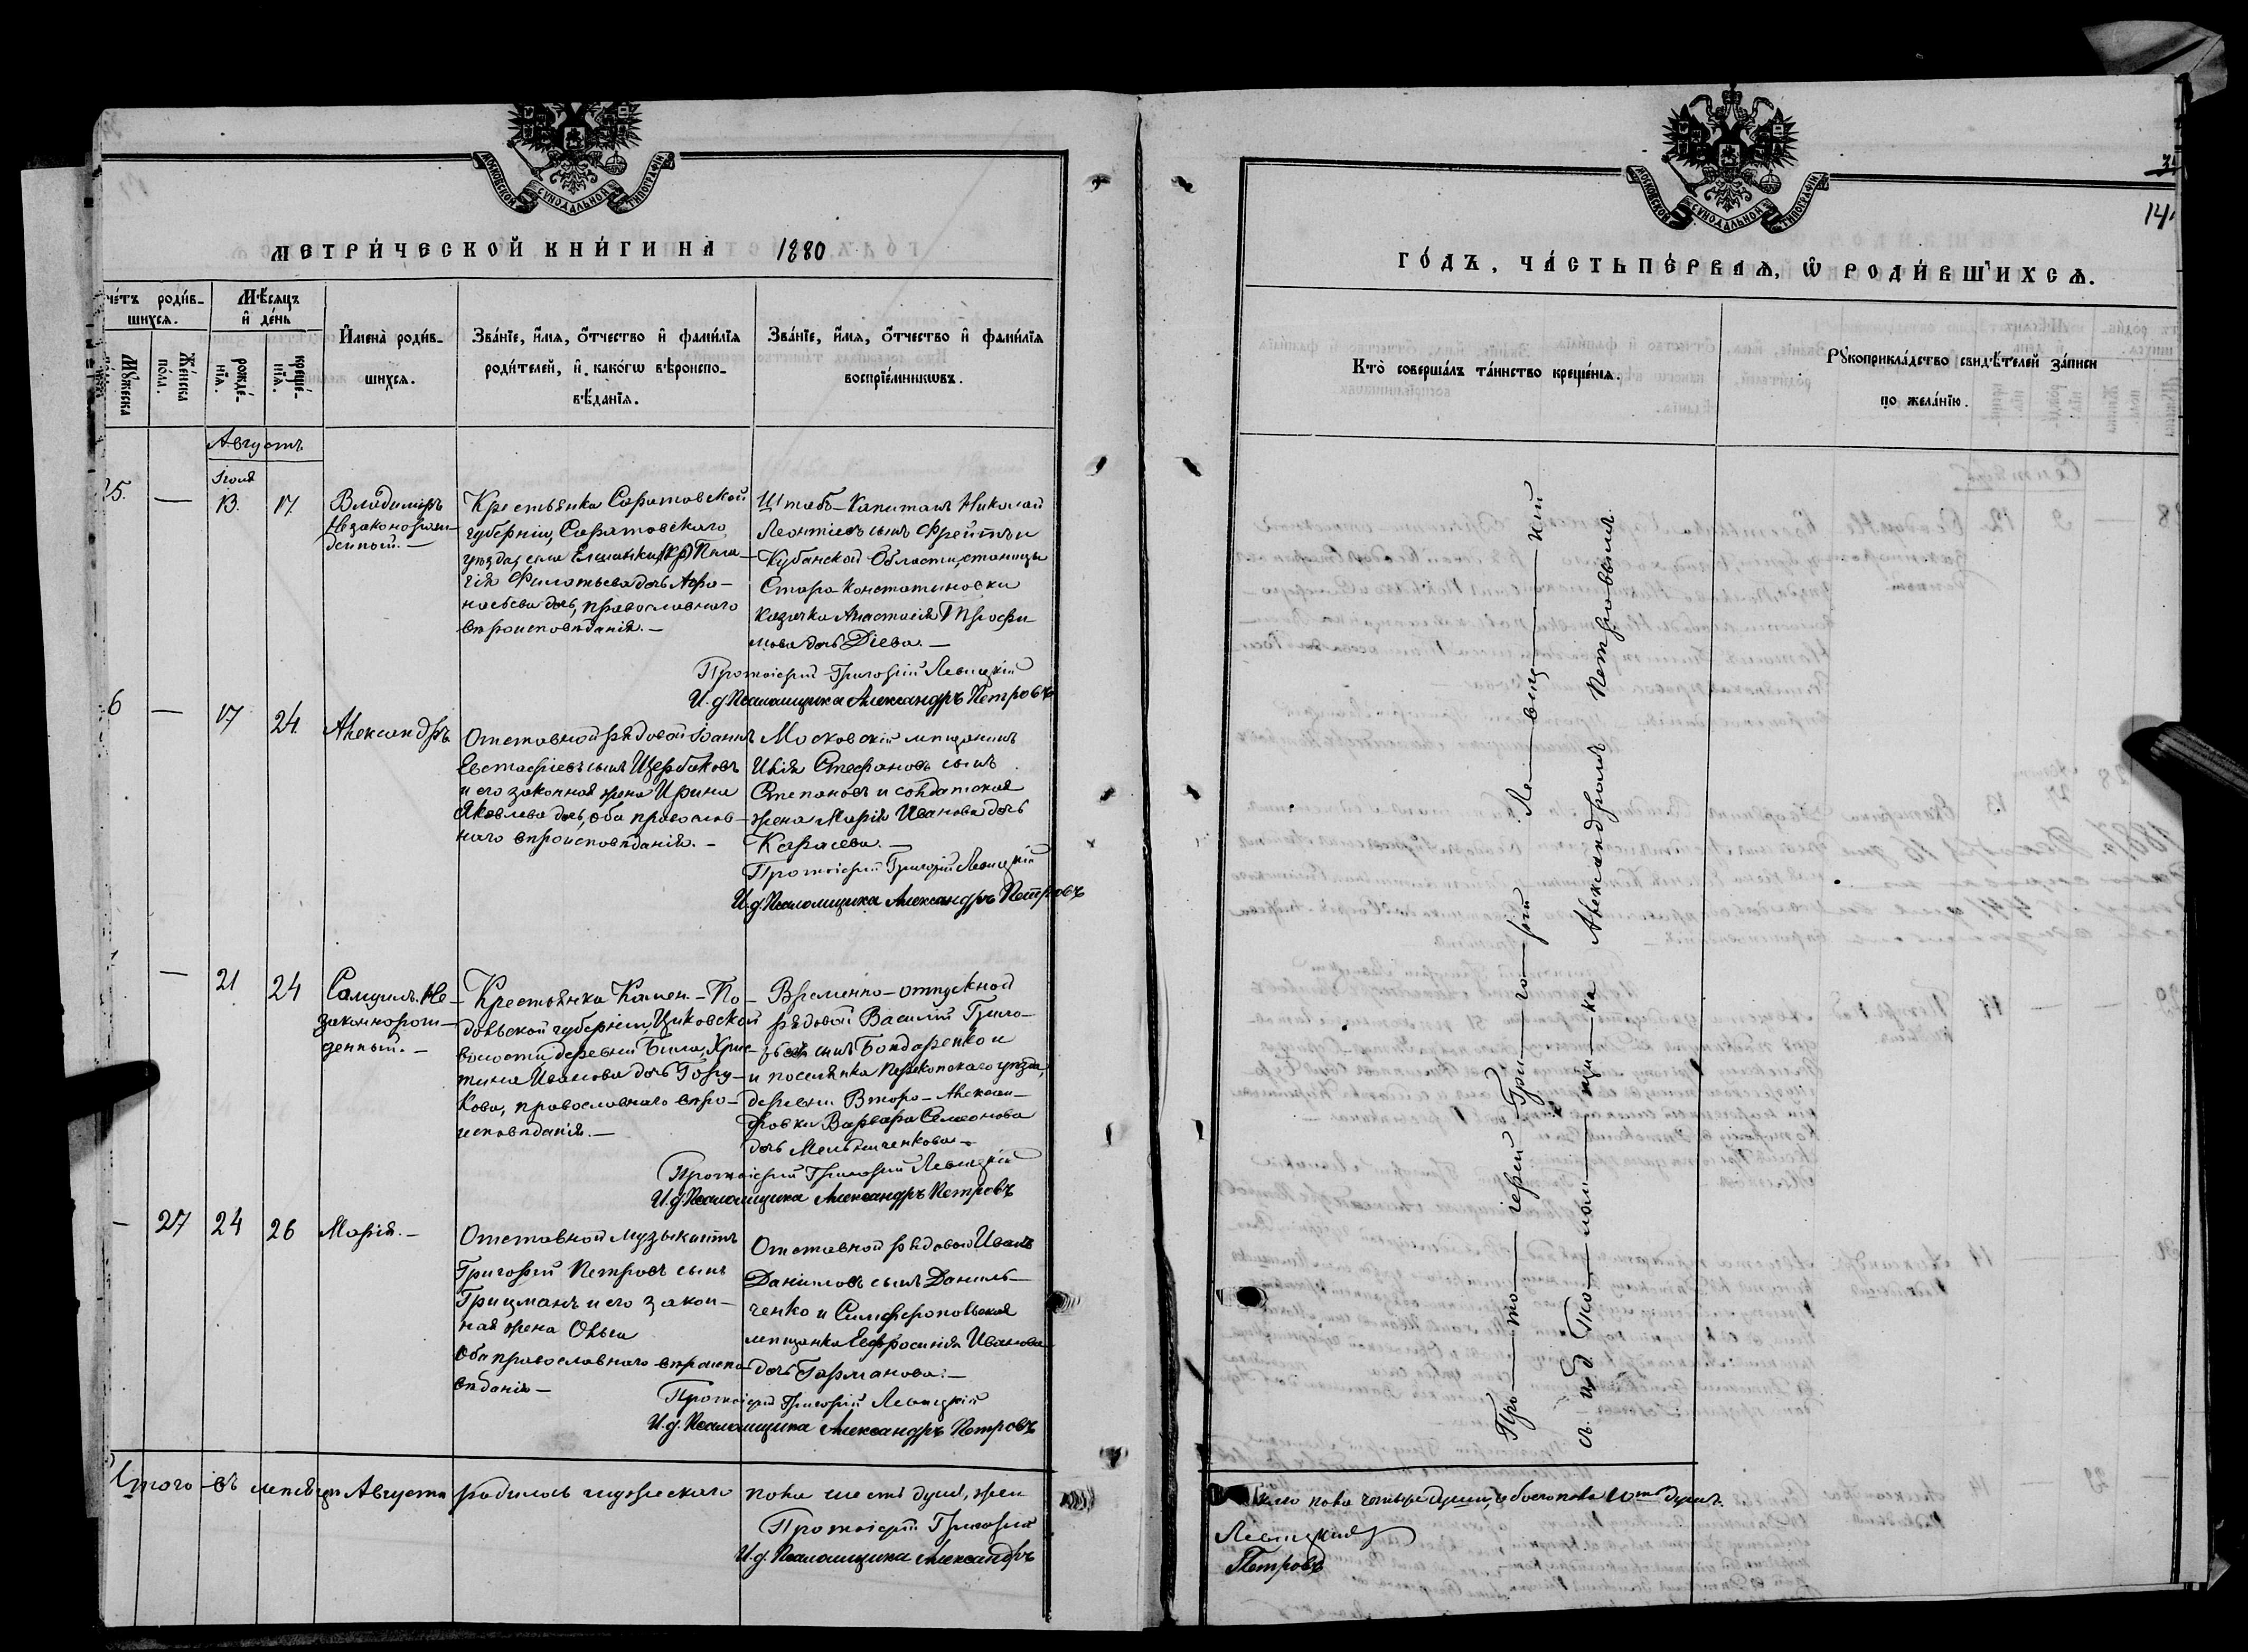 МОСКОВСКОЙ СѴНОДАЛЬНОЙ ТИПОГРАФІИ
МЕТРИ́ЧЕСКОЙ КНИ́ГИ НА 1880
че́тъ роди́в-
шихсѧ.
Мѣ́сѧцъ
и҆ де́нь
Мꙋжеска
по́ла.
Же́нска
по́ла.
рожде́-
нїѧ.
креще́-
нїѧ.
И҆мена̀ роди́в-
шихсѧ.
Зва́нїе, и҆́мѧ, ѻ҆́тчество и҆ фами́лїѧ
роди́телей, и҆ како́гѡ вѣроиспо-
вѣ́данїѧ.
Зва́нїе, и҆́мѧ, ѻ҆́тчество и҆ фами́лїѧ
воспрїе́мникѡвъ.
Августъ
Іюля
25. — 13. 17.
Владиміръ
Незаконорож-
денный. —
Крестьянка Саратовской
губерніи, Саратовскаго
уѣзда, села Елшанки (Кр) Пела-
гія Филатьева дочь Афа-
насьева дочь, православнаго
вѣроисповѣданія. —
Штабъ-Капитанъ Николай
Леонтіевъ сынъ Фрейтъ и
Кубанской Области, станицы
Старо-Констатиновки
казачка Анастасія Трофи-
мова дочь Діева. —
Протоіерей Григорій Левицкій
И. д. Псаломщика Александръ Петровъ
6 — 17 24.
Александръ
Отставной рядовой Іоаннъ
Евстафіевъ сынъ Щербаковъ
и его законная жена Ирина
Яковлева дочь, оба православ-
наго вѣроисповѣданія. —
Московскій мѣщанинъ
Илія Стефановъ сынъ
Степановъ и солдатская
жена Марія Иванова дочь
Карасева. —
Протоіерей Григорій Левицкій
И. д. Псаломщика Александръ Петровъ
— 21 24
Самуилъ. Не-
законорож-
денный. —
Крестьянка Камен.-По-
дольской губерніи, Циковской
волости, деревни Била, Хрис-
тина Иванова дочь Гору-
кова, православнаго вѣро-
исповѣданія. —
Временно-отпускной
рядовой Василій Григо-
рьевъ сынъ Бондаренко и
и поселянка Перекопскаго уѣзда,
деревни Второ-Алексан-
дровки Варвара Семенова
дочь Мельниченкова. —
Протоіерей Григорій Левицкій
И. д. Псаломщика Александръ Петровъ
— 27 24 26
Марія. —
Отставной музыкантъ
Григорій Петровъ сынъ
Грицманъ и его закон-
ная жена Ольга
Оба православнаго вѣроиспо-
вѣданія —
Отставной рядовой Иванъ
Даніиловъ сынъ Даниль-
ченко и Симферопольская
мѣщанка Евфросинія Иванова
дочь Гарманова. —
Протоіерей Григорій Левицкій
И. д. Псаломщика Александръ Петровъ
Итого въ мѣсяцѣ Августѣ родилось мужескаго пола шесть душъ, жен
Протоіерей Григорій
И. д. Псаломщика Александръ
МОСКОВСКОЙ СѴНОДАЛЬНОЙ ТИПОГРАФІИ
14
ГО́ДЪ, ЧА́СТЬ ПЕ́РВАѦ, Ѡ҆ РОДИ́ВШИХСѦ.
Кто̀ соверша́лъ та́инство креще́нїѧ.
Рꙋкоприкла́дство свидѣ́телей за́писи
по жела́нїю.
Про—то—іерей Гри—го—рій Ле—виц—кій
съ и. д. Пса—лом—щи—ка Александромъ Петровымъ.
скаго пола четыре души, обоего пола 10ть душъ.
Левицкій
Петровъ